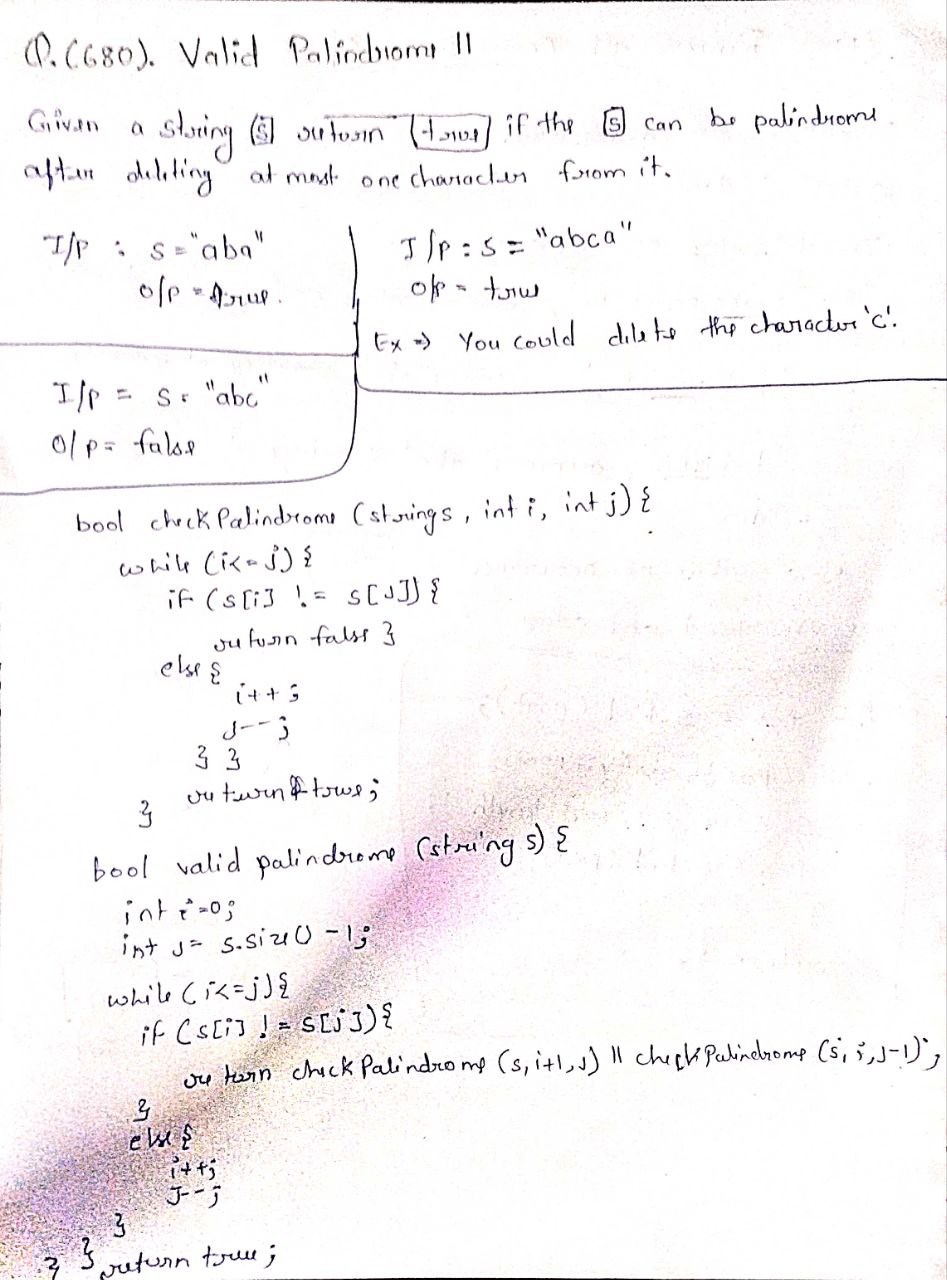 Q.(680). Valid Palindrome II
Given a string [s] return [true] if the [s] can be palindrome
after deleting at most one character from it.
I/P : s = "aba"
O/P = true.
I/P : s = "abca"
O/P = true
Ex => You could delete the character 'c'.
I/P = s = "abc"
O/P = false
bool checkPalindrome (string s, int i, int j) {
while (i<=j) {
if (s[i] != s[J]) {
return false }
else {
i++;
J--;
} }
return true;
}
bool valid palindrome (string s) {
int i=0;
int J = s.size() -1;
while (i<=j) {
if (s[i] != s[j]) {
return checkPalindrome (s, i+1, J) || checkPalindrome (s, i, J-1);
}
else {
i++;
J--;
}
} return true;
}